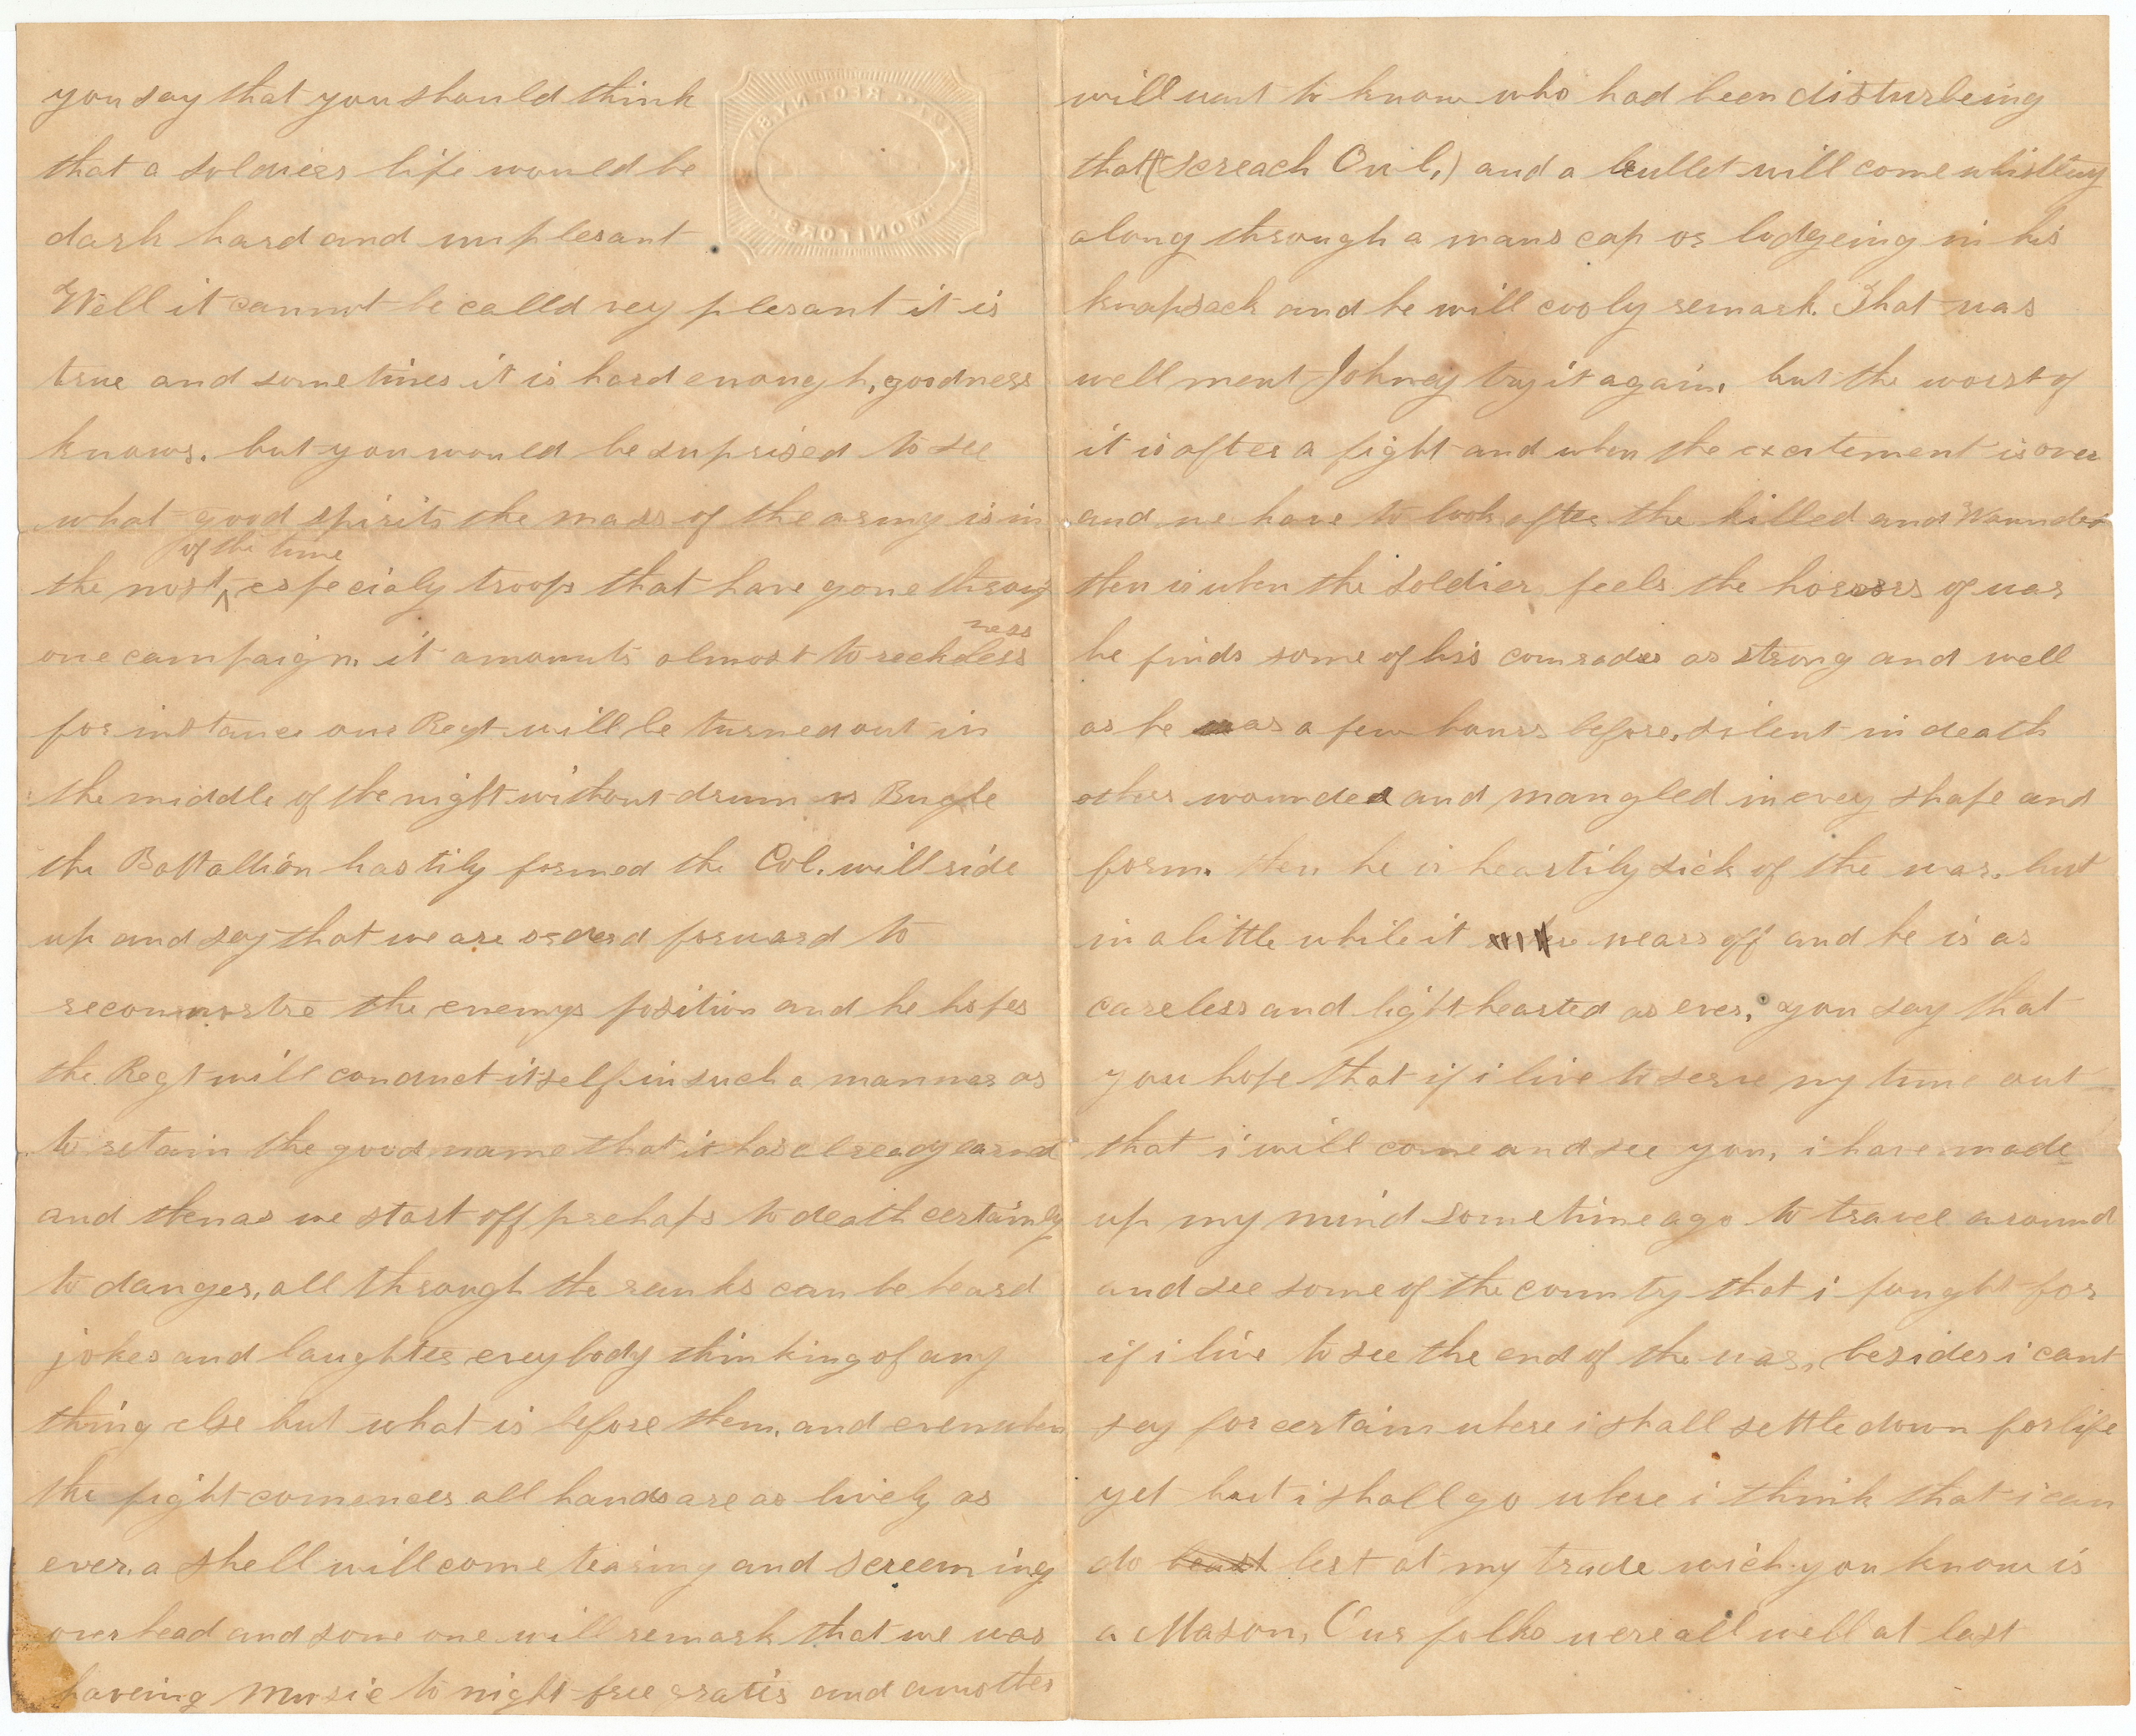 you say that you should think
that a soldiers life would be
dark hard and unplesant
Well it cannot be calld vey plesant it is
true and sometimes it is hard enough, goodness
knows. but you would be suprised to see
what good spirits the mass of the army is in
the most of the time especialy troops that have gone throug
one campaign. it amounts almost to recklessness
for instance our Regt will be turned out in
the middle of the night without drum or Bugle
the Battallion hastily formed the Col. will ride
up and say that we are orderd forward to
the enemys position and he hopes
the Regt will conduct itself in such a manner as
to retain the good name that it has already earned
and then as we start off prehaps to death certainly
to danger, all through the ranks can be heard
jokes and laughter evey body thinking of any
thing else but what is before them. and even when
the fight comences all hands are as lively as
ever. a shell will come tearing and screeming
over head and some one will remark that we was
haveing Music to night free gratis and another
will want to know who had been disturbeing
that (screach Owl,) and a bullet will come whistling
along through a mans cap or lodgeing in his
knapsack and he will cooly remark. That was
well ment Johney try it again. but the worst of
it is after a fight and when the excitement is over
and we have to look after the killed and Wounded
then is when the soldier feels the horrors of war
he finds some of his comrades as strong and well
as he was a few hours before, silent in death
other wounded and mangled in evey shape and
form. then he is heartily sick of the war. but
in a little while it wears off and he is as
careless and light hearted as ever, you say that
you hope that if i live to serve my time out
that i will come and see you, i have made
up my mind sometime ago to travel around
and see some of the country that i fought for
if i live to see the end of the war, besides i cant
say for certain where i shall settle down for life
yet but i shall go where i think that i can
do best at my trade wich you know is
a Mason, Our folks were all well at last